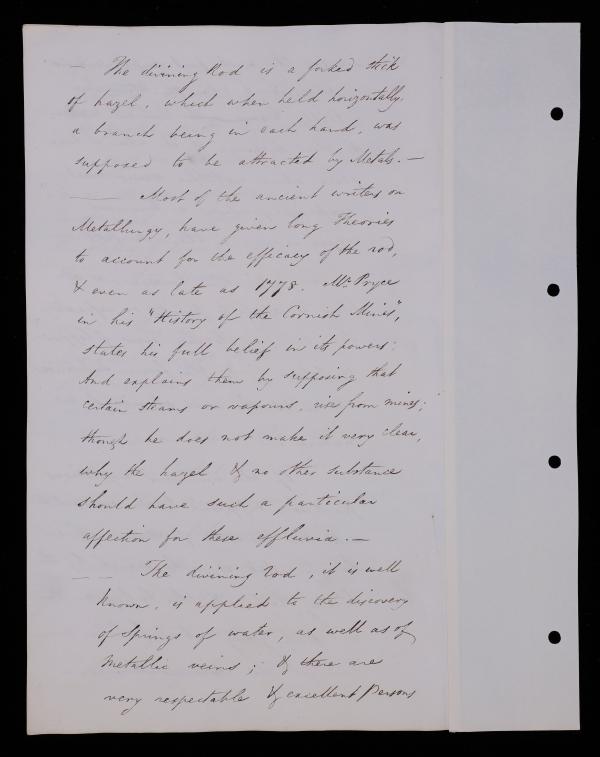 — The divining Rod is a forked stick
of hazel, which when held horizontally,
a branch being in each hand, was
supposed to be attracted by Metals. —
—— Most of the ancient writers on
Metallurgy, have given long Theories
to account for the efficacy of the rod,
& even as late as 1778. Mr. Pryce
in his "History of the Cornish Mines",
states his full belief in its powers:
And explains them by supposing that
certain steams or vapours, rise from mines;
though he does not make it very clear,
why the hazel & no other substance
should have such a particular
affection for these effluvia. —
—— The divining rod, it is well
known, is applied to the discovery
of Springs of water, as well as of
Metallic veins; & there are
very respectable & excellent Persons